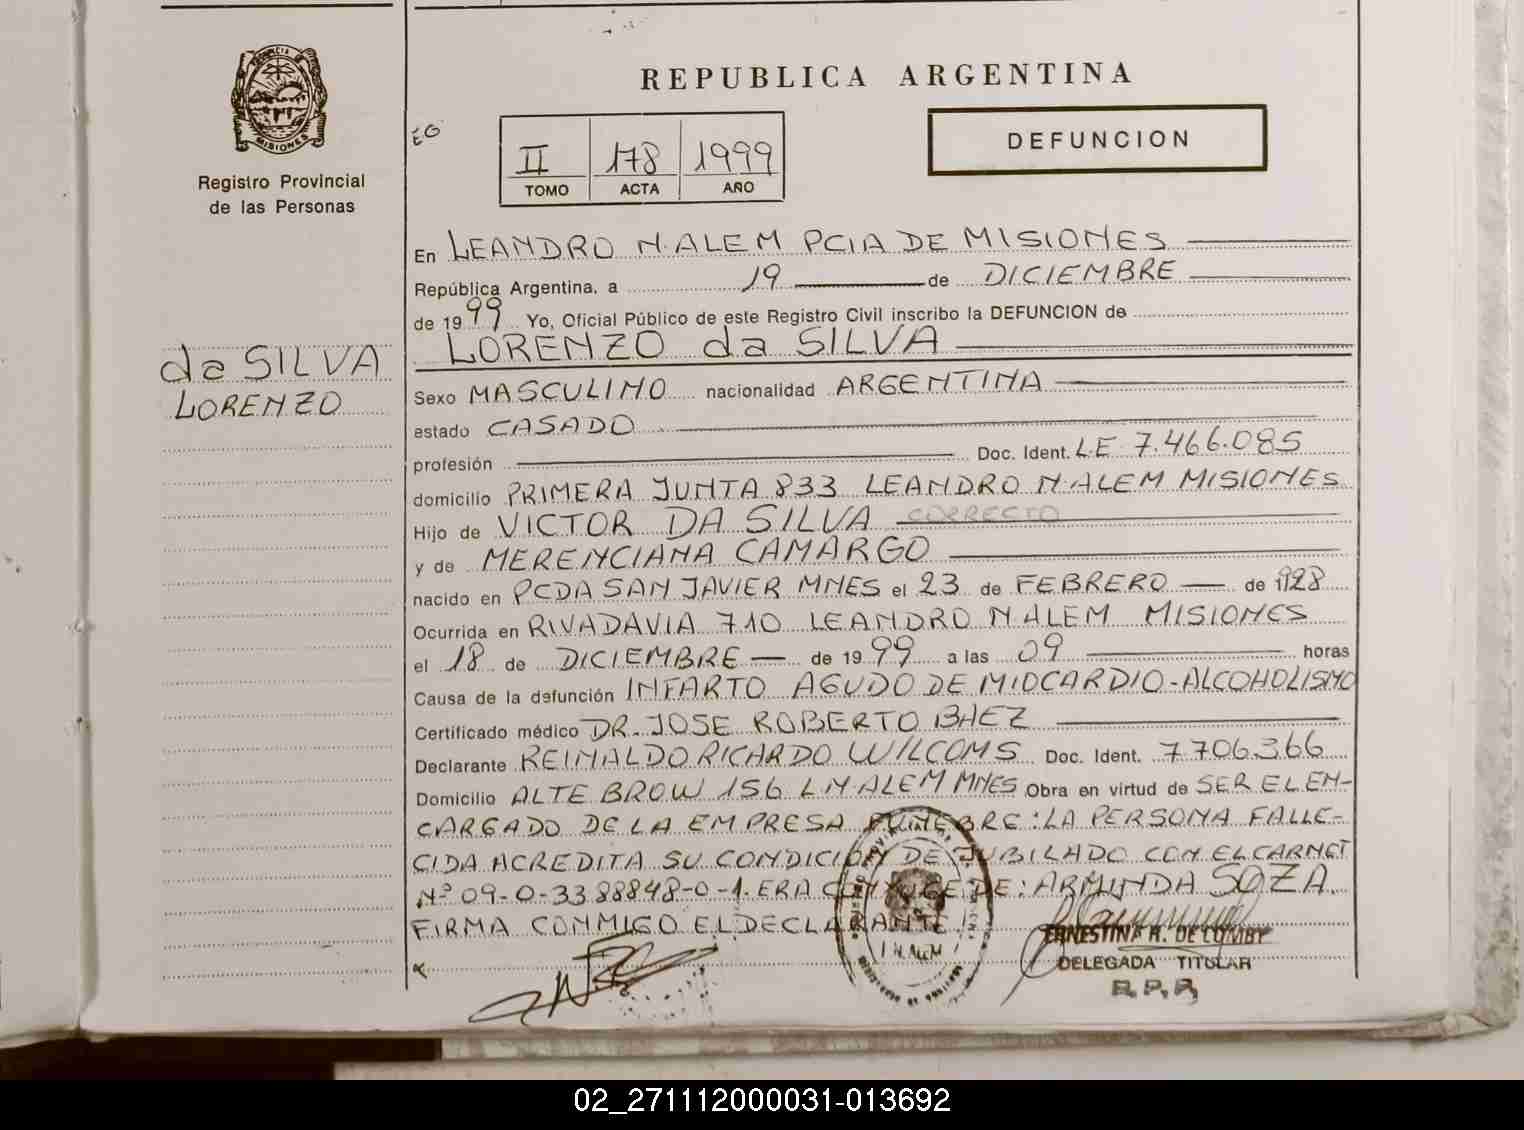 PROVINCIA DE
MISIONES
Registro Provincial
de las Personas
da SILVA
LORENZO
REPUBLICA ARGENTINA
EG
II 178 1999
TOMO ACTA AÑO
DEFUNCION
En LEANDRO N. ALEM PCIA DE MISIONES
República Argentina, a 19 de DICIEMBRE
de 1999 Yo, Oficial Público de este Registro Civil inscribo la DEFUNCION de
LORENZO da SILVA
Sexo MASCULINO nacionalidad ARGENTINA
estado CASADO
profesión Doc. Ident. L.E 7.466.085
domicilio PRIMERA JUNTA 833 LEANDRO N. ALEM MISIONES
Hijo de VICTOR DA SILVA CORRECTO
y de MERENCIANA CAMARGO
nacido en PCDA SAN JAVIER MNES el 23 de FEBRERO de 1928
Ocurrida en RIVADAVIA 710 LEANDRO N. ALEM MISIONES
el 18 de DICIEMBRE de 1999 a las 09 horas
Causa de la defunción INFARTO AGUDO DE MIOCARDIO-ALCOHOLISMO
Certificado médico DR. JOSE ROBERTO BAEZ
Declarante REINALDO RICARDO WILCOMS Doc. Ident. 7706366
Domicilio ALTE BROW 156 L.N. ALEM MNES Obra en virtud de SER EL EN-
CARGADO DE LA EMPRESA FUNEBRE: LA PERSONA FALLE-
CIDA ACREDITA SU CONDICION DE JUBILADO CON EL CARNET
Nº 09-0-3388848-0-1. ERA CONYUGE DE: ARMINDA SOZA.
FIRMA CONMIGO EL DECLARANTE
ERNESTINA R. DE LOMBY
DELEGADA TITULAR
R. P. P.
02_271112000031-013692